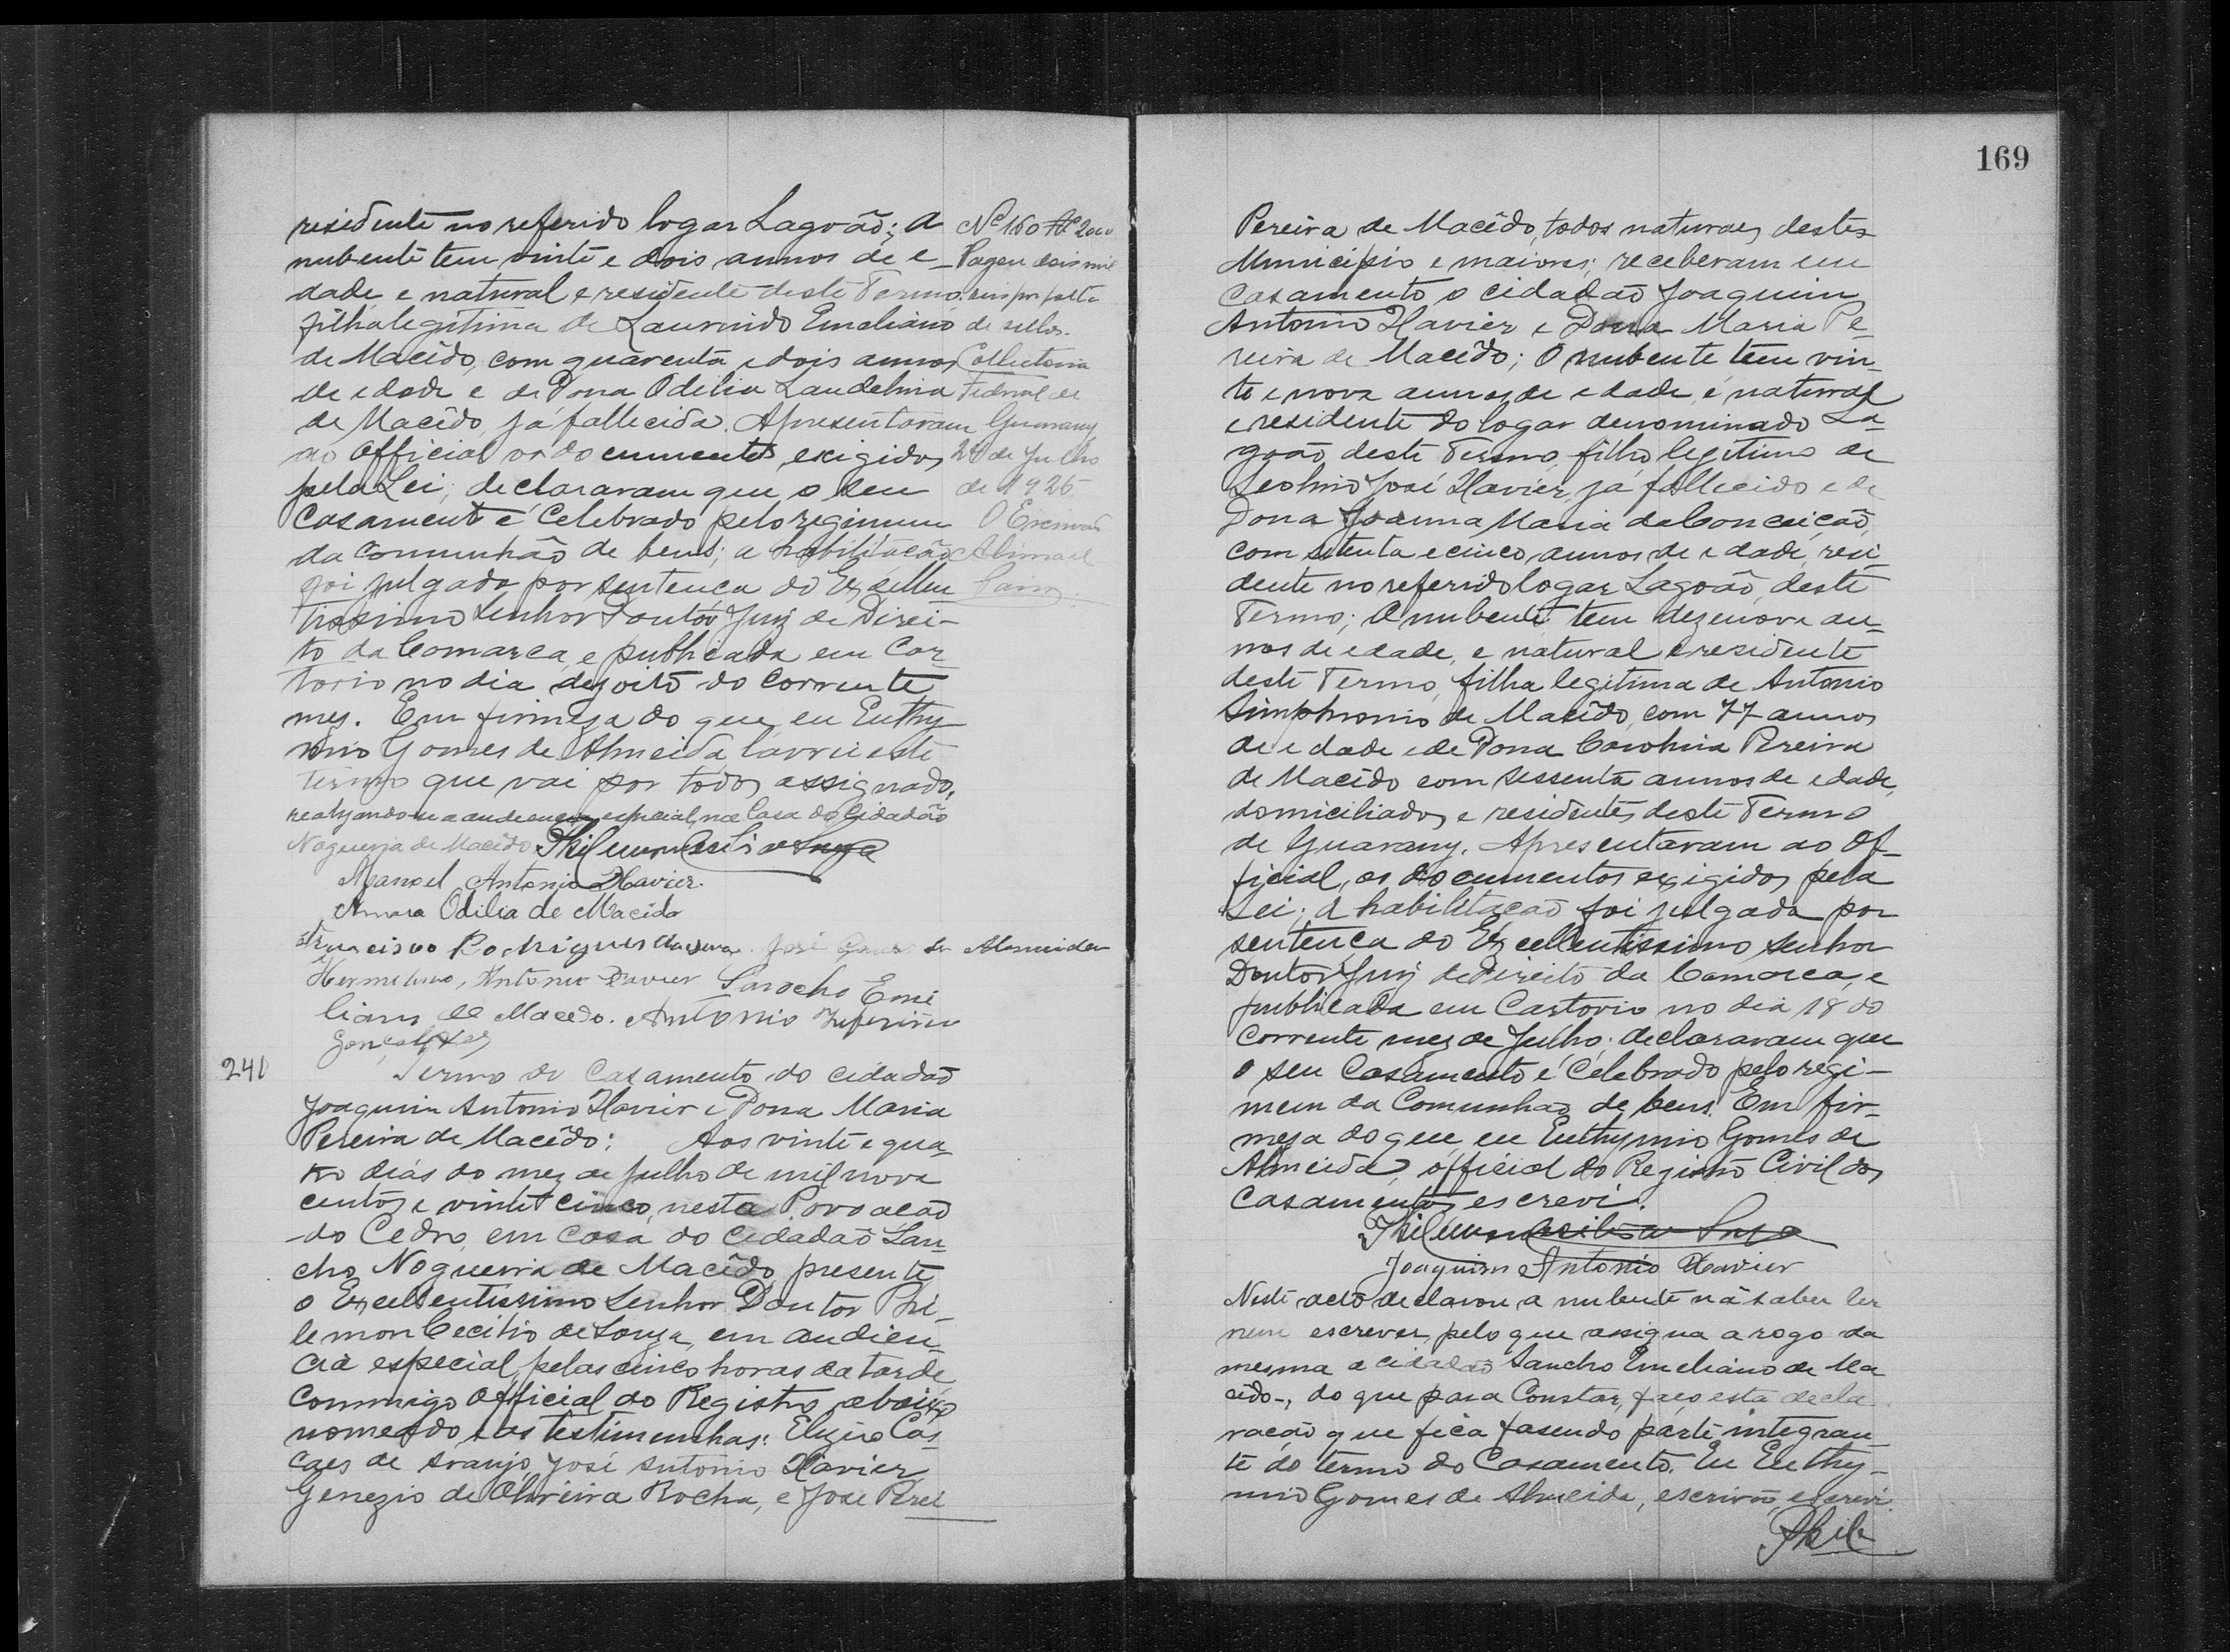 residente no referido logar Lagoão; A
nubente tem vinte e dois annos de e-
dade, e natural e residente deste Termo,
filha legitima de Laurindo Emeliano
de Macêdo, com quarenta e dois annos
de edade e de Dona Odilia Laudelina
de Macêdo, já fallecida. Apresentaram
ao Official os documentos exigidos
pela Lei; declararam que o seu
Casamento é Celebrado pelo regimem
da Communhão de bens; a habilitação
foi julgada por sentença do Excellen
tissimo Senhor Doutor Juiz de Direi-
to da Comarca, e publicada em Car
torio no dia dezoito do corrente
mez. Em firmeza do que, eu Euthy
mio Gomes de Almeida, lavrei este
termo que vai por todos assignado,
realizando-se a audiencia especial, na Casa do Cidadão
Nogueira de Macêdo. Philemon Cecilio de Souza
Manoel Antonio Xavier.
Anna Odilia de Macêdo
Francisco Rodrigues José de Almeida
Antonio Xavier Sancho Eme
liano de Macedo. Antonio
Gonçalves
Nº 160 Rs 2000
Pagou dois mil
reis por falta
de sellos.
Collectoria
Federal de
Guarany
24 de Julho
de 1925
O Escrivão
240
Termo de Casamento do cidadão
Joaquim Antonio Xavier e Dona Maria
Pereira de Macêdo: Aos vinte e qua-
tro dias do mez de Julho de mil nove
centos e vinte e cinco, nesta Povoação
do Cedro, em Casa do Cidadão San-
cho Nogueira de Macêdo, presente
o Excellentissimo Senhor Doutor Phi-
lemon Cecilio de Souza, em audien-
cia especial, pelas cinco horas da tarde
commigo Official do Registro abaixo
nomeado e as testimunhas: Elizio Cas
caes de Araujo, José Antonio Xavier,
Genezio de Oliveira Rocha, e José Perei
169
Pereira de Macêdo, todos naturaes deste
Municipio e maiores; receberam em
Casamento o cidadão Joaquim
Antonio Xavier e Dona Maria Pe-
reira de Macêdo; O nubente tem vin-
te e nove annos de edade, é natural
e residente do logar denominado La-
goão deste Termo, filho legitimo de
José Xavier, já fallecido e de
Dona Joanna Maria da Conceição,
com setenta e cinco annos de edade, resi-
dente no referido logar Lagoão, deste
Termo; A nubente tem dezenove an-
nos de edade, e natural e residente
deste Termo, filha legitima de Antonio
Simphronio de Macêdo, com 77 annos
de edade e de Dona Carolina Pereira
de Macêdo com sessenta annos de edade,
domiciliados e residentes deste Termo
de Guarany. Apresentaram ao Of-
ficial, os documentos exigidos pela
Lei; A habilitação foi julgada por
sentença do Excellentissimo Senhor
Doutor Juiz de Direito da Comarca, e
publicada em Cartorio no dia 18 do
corrente mez de Julho; declararam que
o seu Casamento é Celebrado pelo regi-
mem da Comunhão de bens. Em fir-
meza do que eu Euthymio Gomes de
Almeida, official do Registro Civil dos
Casamentos escrevi.
Philemon Cecilio de Souza
Joaquim Antonio Xavier
Neste acto declarou a nubente não saber ler
nem escrever, pelo que assigna a rogo da
mesma o cidadão Sancho Emeliano de Ma
cêdo-, do que para Constar, faço esta decla-
ração que fica fasendo parte integran-
te do termo do Casamento. Eu Euthy-
mio Gomes de Almeida, escrivão, escrevi.